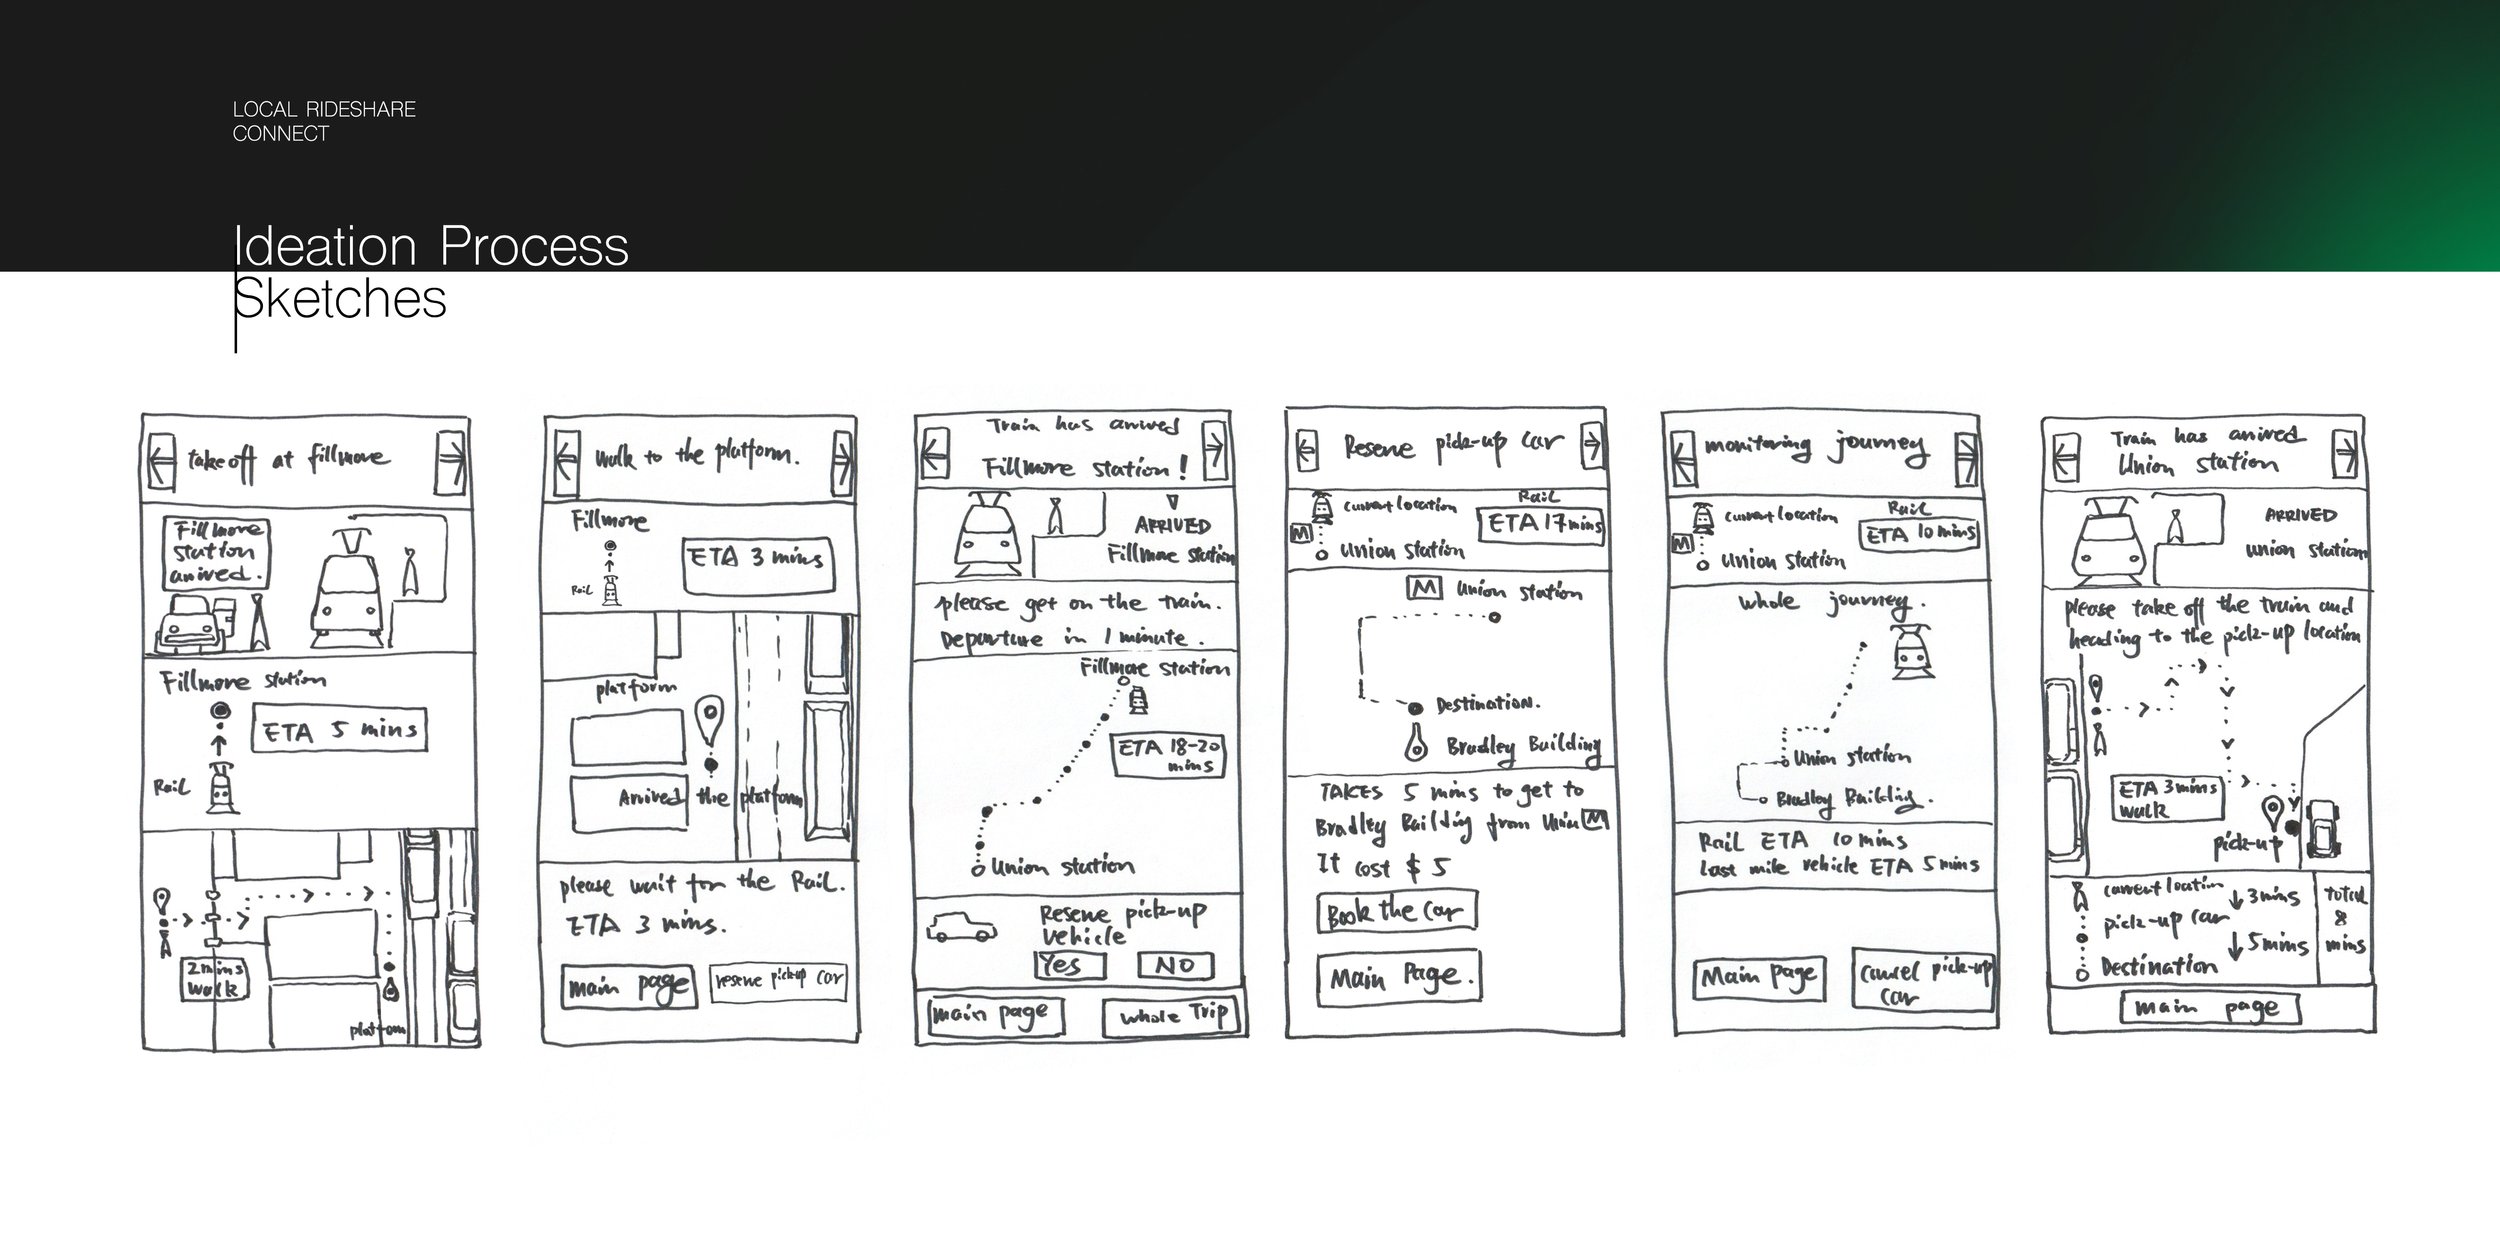 LOCAL RIDESHARE
CONNECT
Ideation Process
Sketches
take off at fillmore
Fillmore
station
arrived.
Fillmore station
ETA 5 mins
Rail
2 mins
walk
platform
walk to the platform.
Fillmore
Rail
ETA 3 mins
platform
Arrived the platform
please wait for the Rail.
ETA 3 mins.
main page
reserve pick-up car
Train has arrived
Fillmore station!
ARRIVED
Fillmore station
please get on the train.
Departure in 1 minute.
Fillmore station
ETA 18-20
mins
Union station
Reserve pick-up
vehicle
Yes
NO
main page
whole Trip
Reserve pick-up car
current location
Rail
ETA 17 mins
M
Union station
M Union station
Destination.
Bradley Building
TAKES 5 mins to get to
Bradley Building from Union M
It cost $5
Book the car
Main Page.
monitoring journey
current location
Rail
ETA 10 mins
M
Union station
whole journey.
Union station
Bradley Building.
Rail ETA 10 mins
last mile vehicle ETA 5 mins
Main page
Cancel pick-up
car
Train has arrived
Union station
ARRIVED
union station
please take off the train and
heading to the pick-up location
ETA 3 mins
walk
pick-up
current location
3 mins
pick-up car
5 mins
Destination
total
8
mins
main page